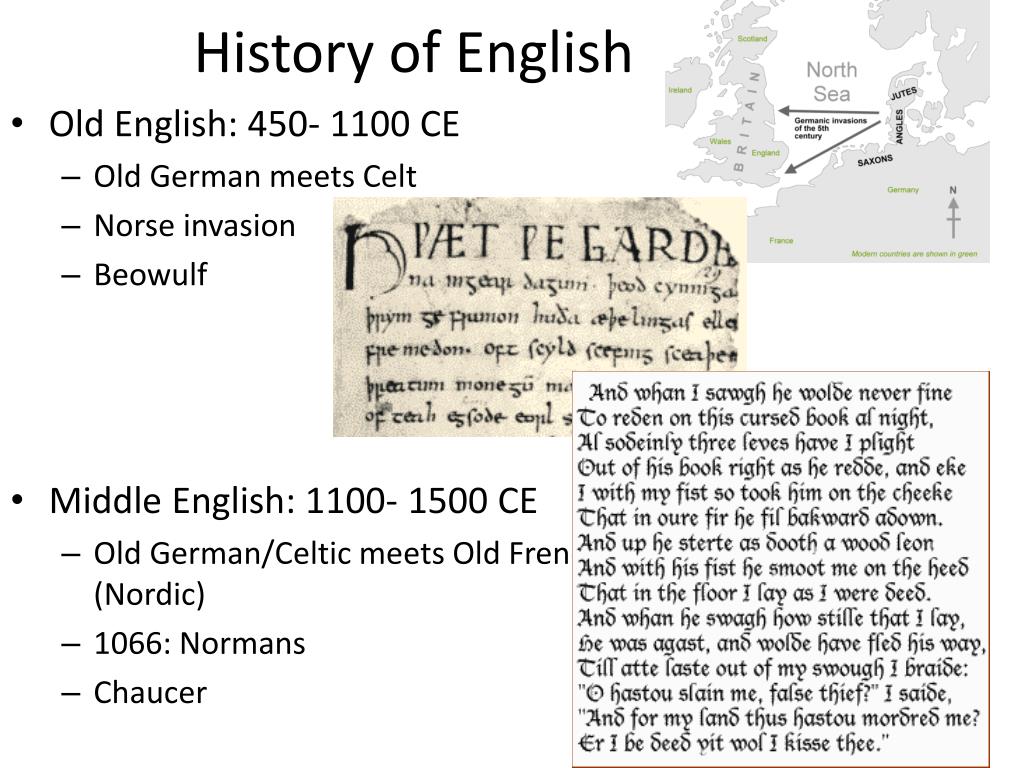 History of English
• Old English: 450- 1100 CE
– Old German meets Celt
– Norse invasion
– Beowulf
Scotland
North
Sea
Ireland
JUTES
ANGLES
Germanic invasions
of the 5th
century
BRITAIN
Wales
England
SAXONS
Germany
N
France
Modern countries are shown in green
HǷÆT ǷE GARDE
na ingear dagum. þeod cyninga
þrym ge frunon huða æþelingas elle
fremedon. oft scyld scefing sceaþen
þreatum monegū
of teah egsode eorl
And whan I sawgh he wolde never fine
To reden on this cursed book al night,
Al sodeinly three leves have I plight
Out of his book right as he redde, and eke
I with my fist so took him on the cheeke
That in oure fir he fil bakward adown.
And up he sterte as dooth a wood leon
And with his fist he smoot me on the heed
That in the floor I lay as I were deed.
And whan he swagh how stille that I lay,
He was agast, and wolde have fled his way,
Till atte laste out of my swough I braide:
"O hastou slain me, false thief?" I saide,
"And for my land thus hastou mordred me?
Er I be deed yit wol I kisse thee."
• Middle English: 1100- 1500 CE
– Old German/Celtic meets Old Fren
(Nordic)
– 1066: Normans
– Chaucer